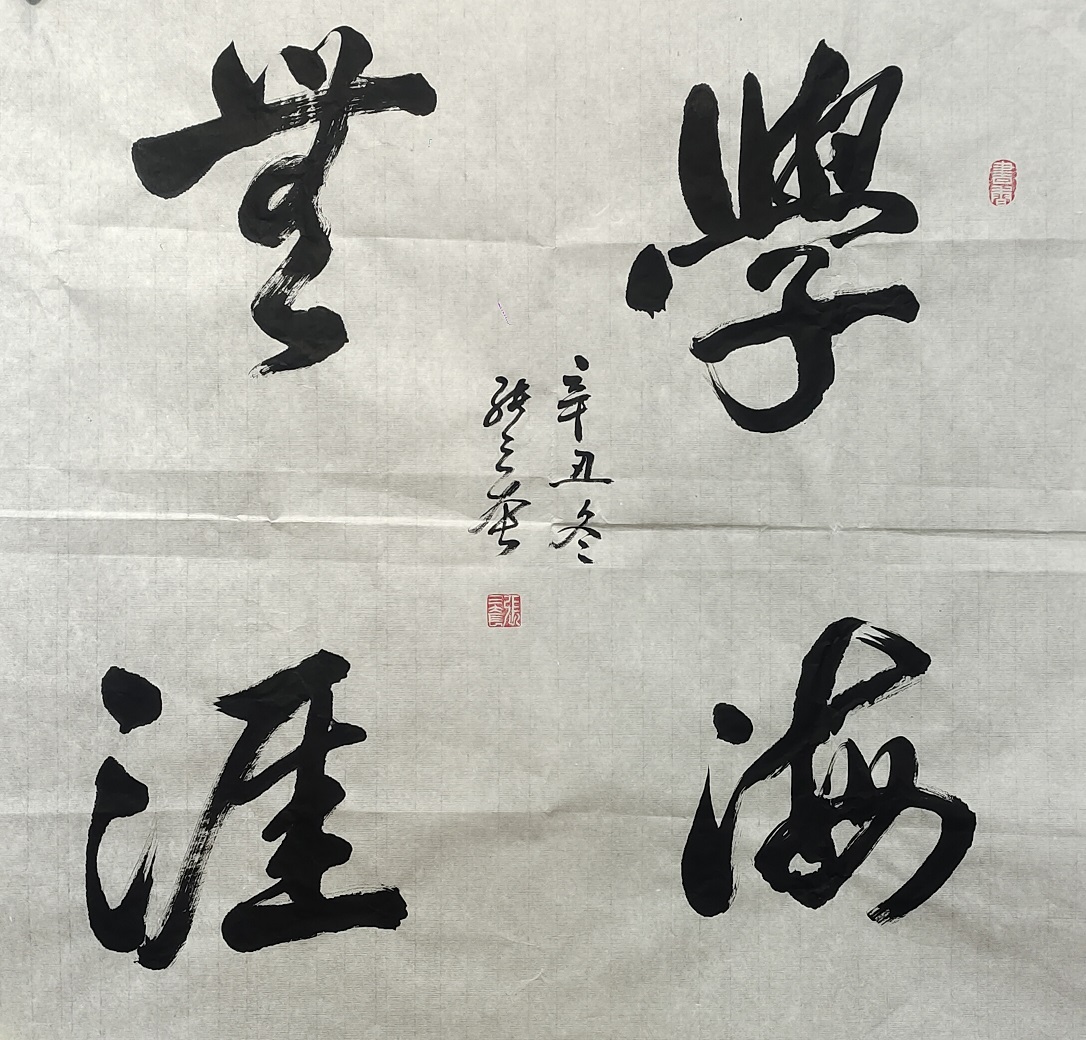 學海
無涯
辛丑冬
張三
張